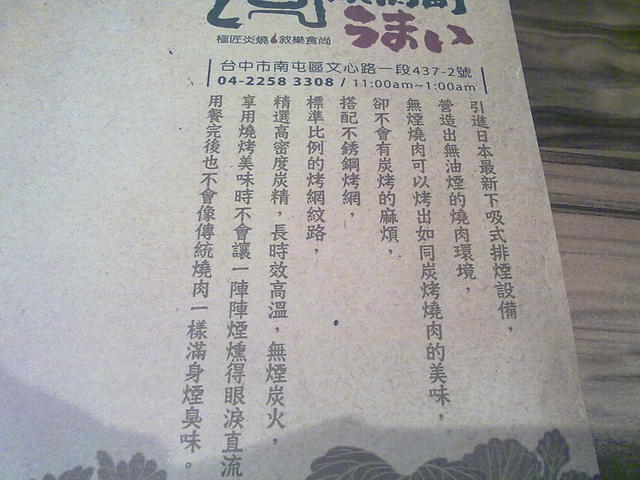 うまい
極匠炎燒 敘樂食尚
台中市南屯區文心路一段437-2號
04-2258 3308 / 11:00am~1:00am
引進日本最新下吸式排煙設備，
營造出無油煙的燒肉環境，
無煙燒肉可以烤出如同炭烤燒肉的美味，
卻不會有炭烤的麻煩，
搭配不銹鋼烤網，
標準比例的烤網紋路，
精選高密度炭精，長時效高溫，無煙炭火，
享用燒烤美味時不會讓一陣陣煙燻得眼淚直流
用餐完後也不會像傳統燒肉一樣滿身煙臭味。